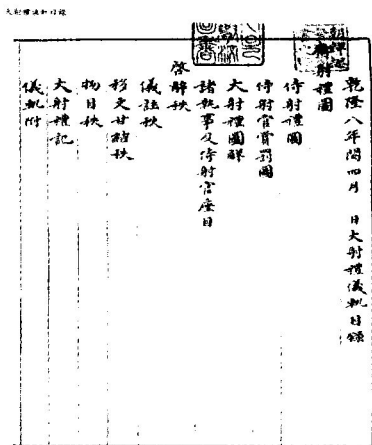 大射禮儀軌目錄
乾隆八年閏四月 日大射禮儀軌目錄
御射禮圖
侍射禮圖
侍射官賞罰圖
大射禮圖解
諸執事及侍射官座目
啓辭秩
儀註秩
移文甘結秩
物目秩
大射禮記
儀軌附